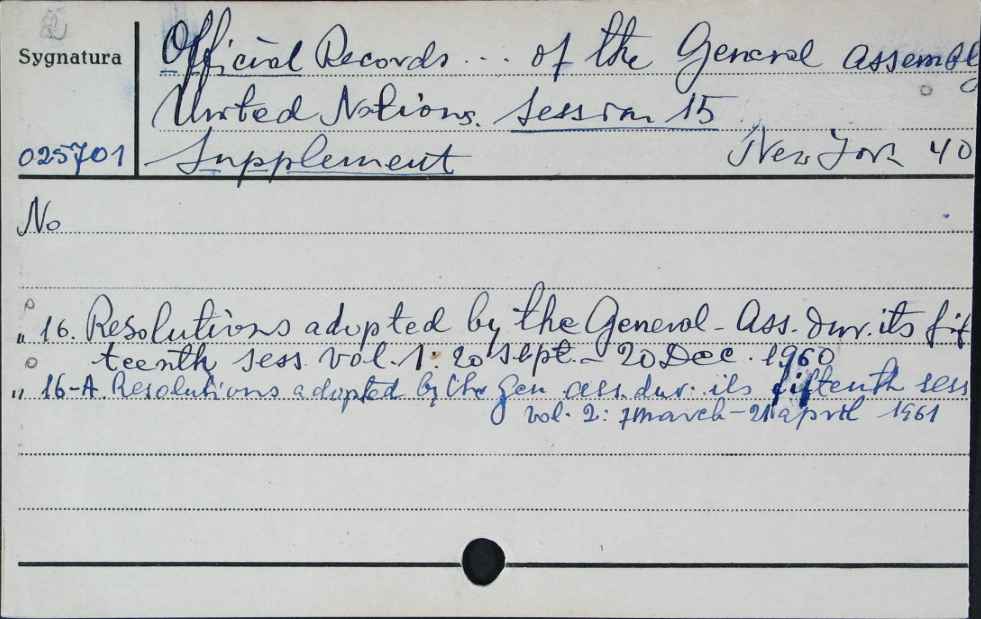 Sygnatura
Official Records ... of the General Assembly
United Nations. Session 15
025701
Supplement New York 40
No
" 16. Resolutions adopted by the General-Ass. dur. its fif
teenth sess. vol. 1: 20 sept. - 20 Dec. 1960
" 16-A. Resolutions adopted by the gen. ass. dur. its fiftenth sess
vol. 2: 7 march - 21 april 1961